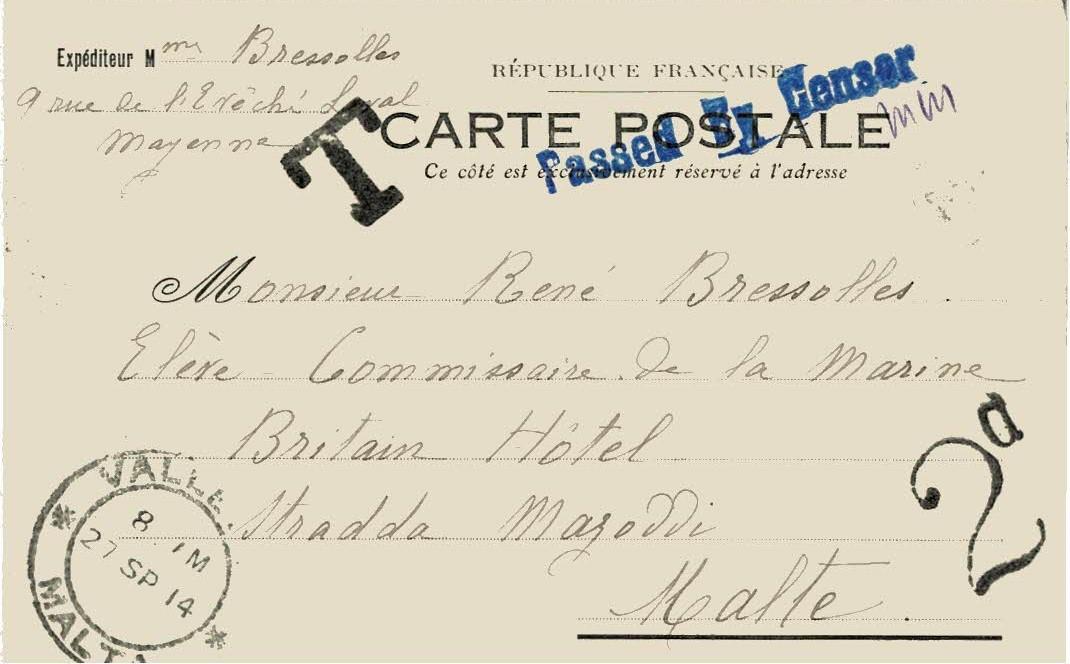 Expéditeur Mme Bressolles
9 rue de l'Evêché Laval
Mayenne
RÉPUBLIQUE FRANÇAISE
CARTE POSTALE
Ce côté est exclusivement réservé à l'adresse
Passed By Censor
T
Monsieur René Bressolles.
Elève-Commissaire de la Marine
Britain Hôtel
Stradda Mazoddi
Malte.
2d
VALLE
8
27 SP 14
MALTA